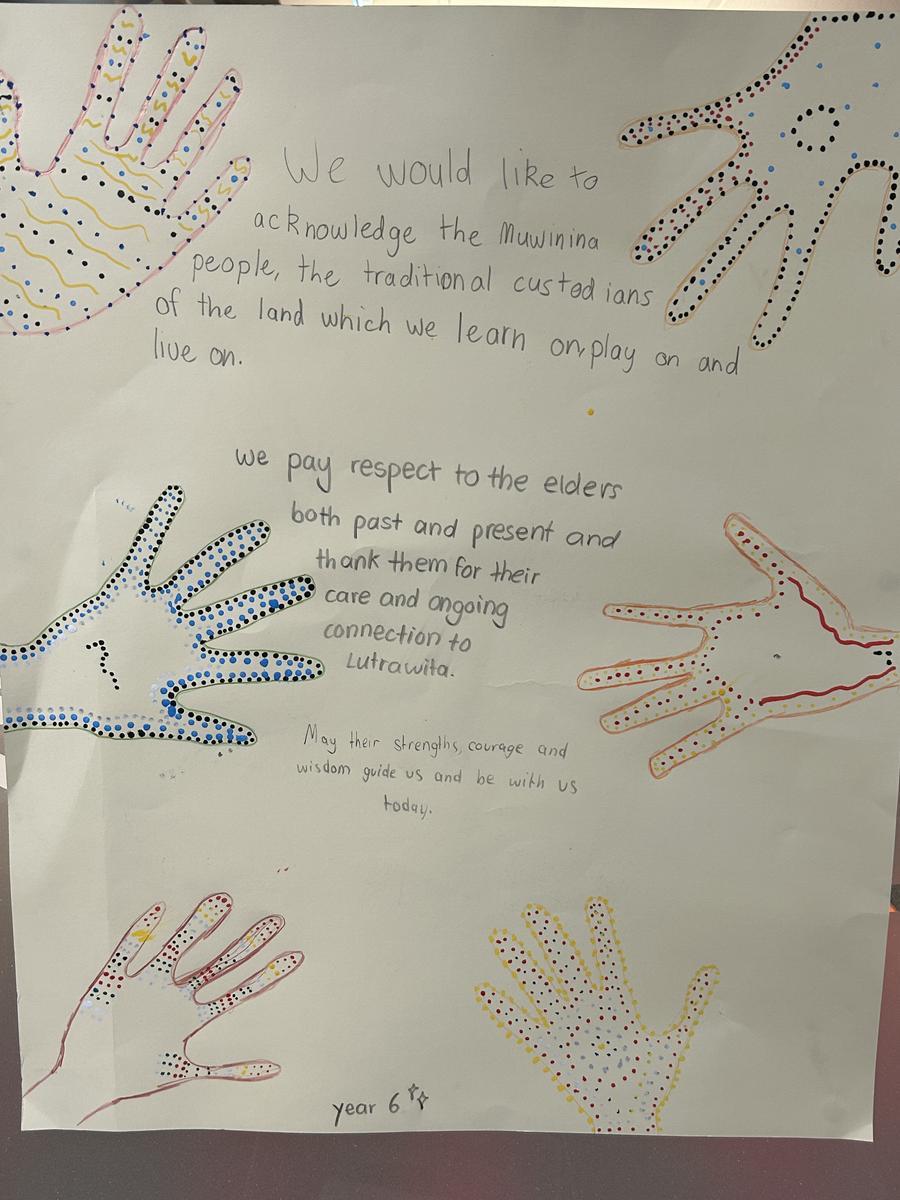 We would like to
acknowledge the Muwinina
people, the traditional custodians
of the land which we learn on, play on and
live on.
we pay respect to the elders
both past and present and
thank them for their
care and ongoing
connection to
Lutrawita.
May their strengths, courage and
wisdom guide us and be with us
today.
year 6